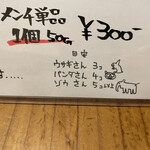 メンチ単品
1個 50g ¥300-
目安
ウサギさん 3コ
パンダさん 4コ
ゾウさん 5コ
は.....